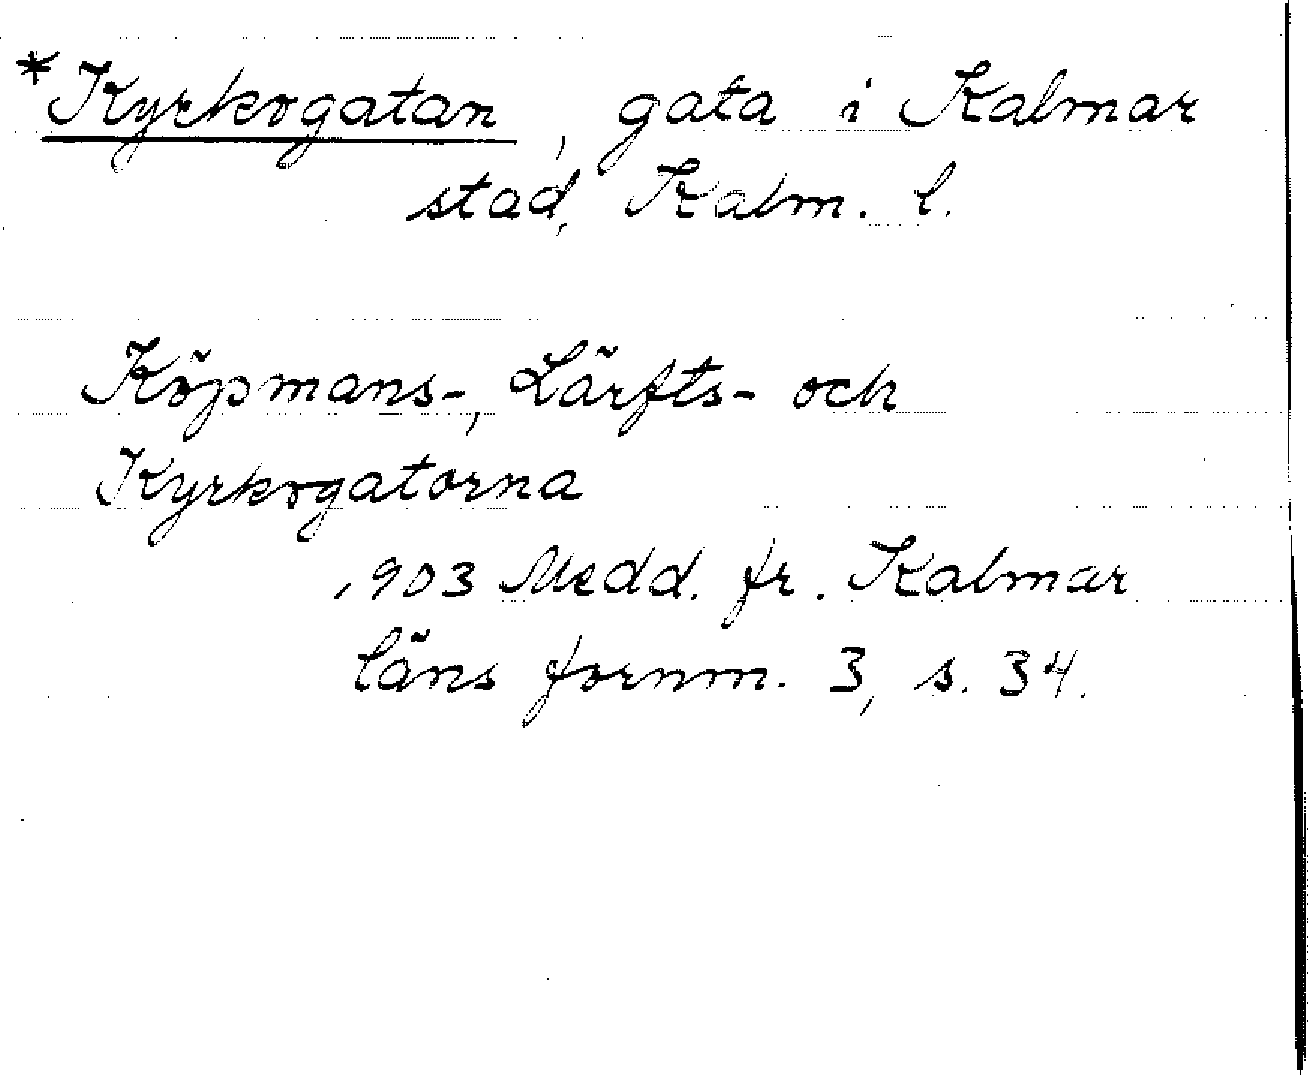 *Kyrkogatan, gata i Kalmar
stad, Kalm. l.
Köpmans-, Lärfts- och
Kyrkogatorna
1903 Medd. fr. Kalmar
läns fornm. 3, s. 34.